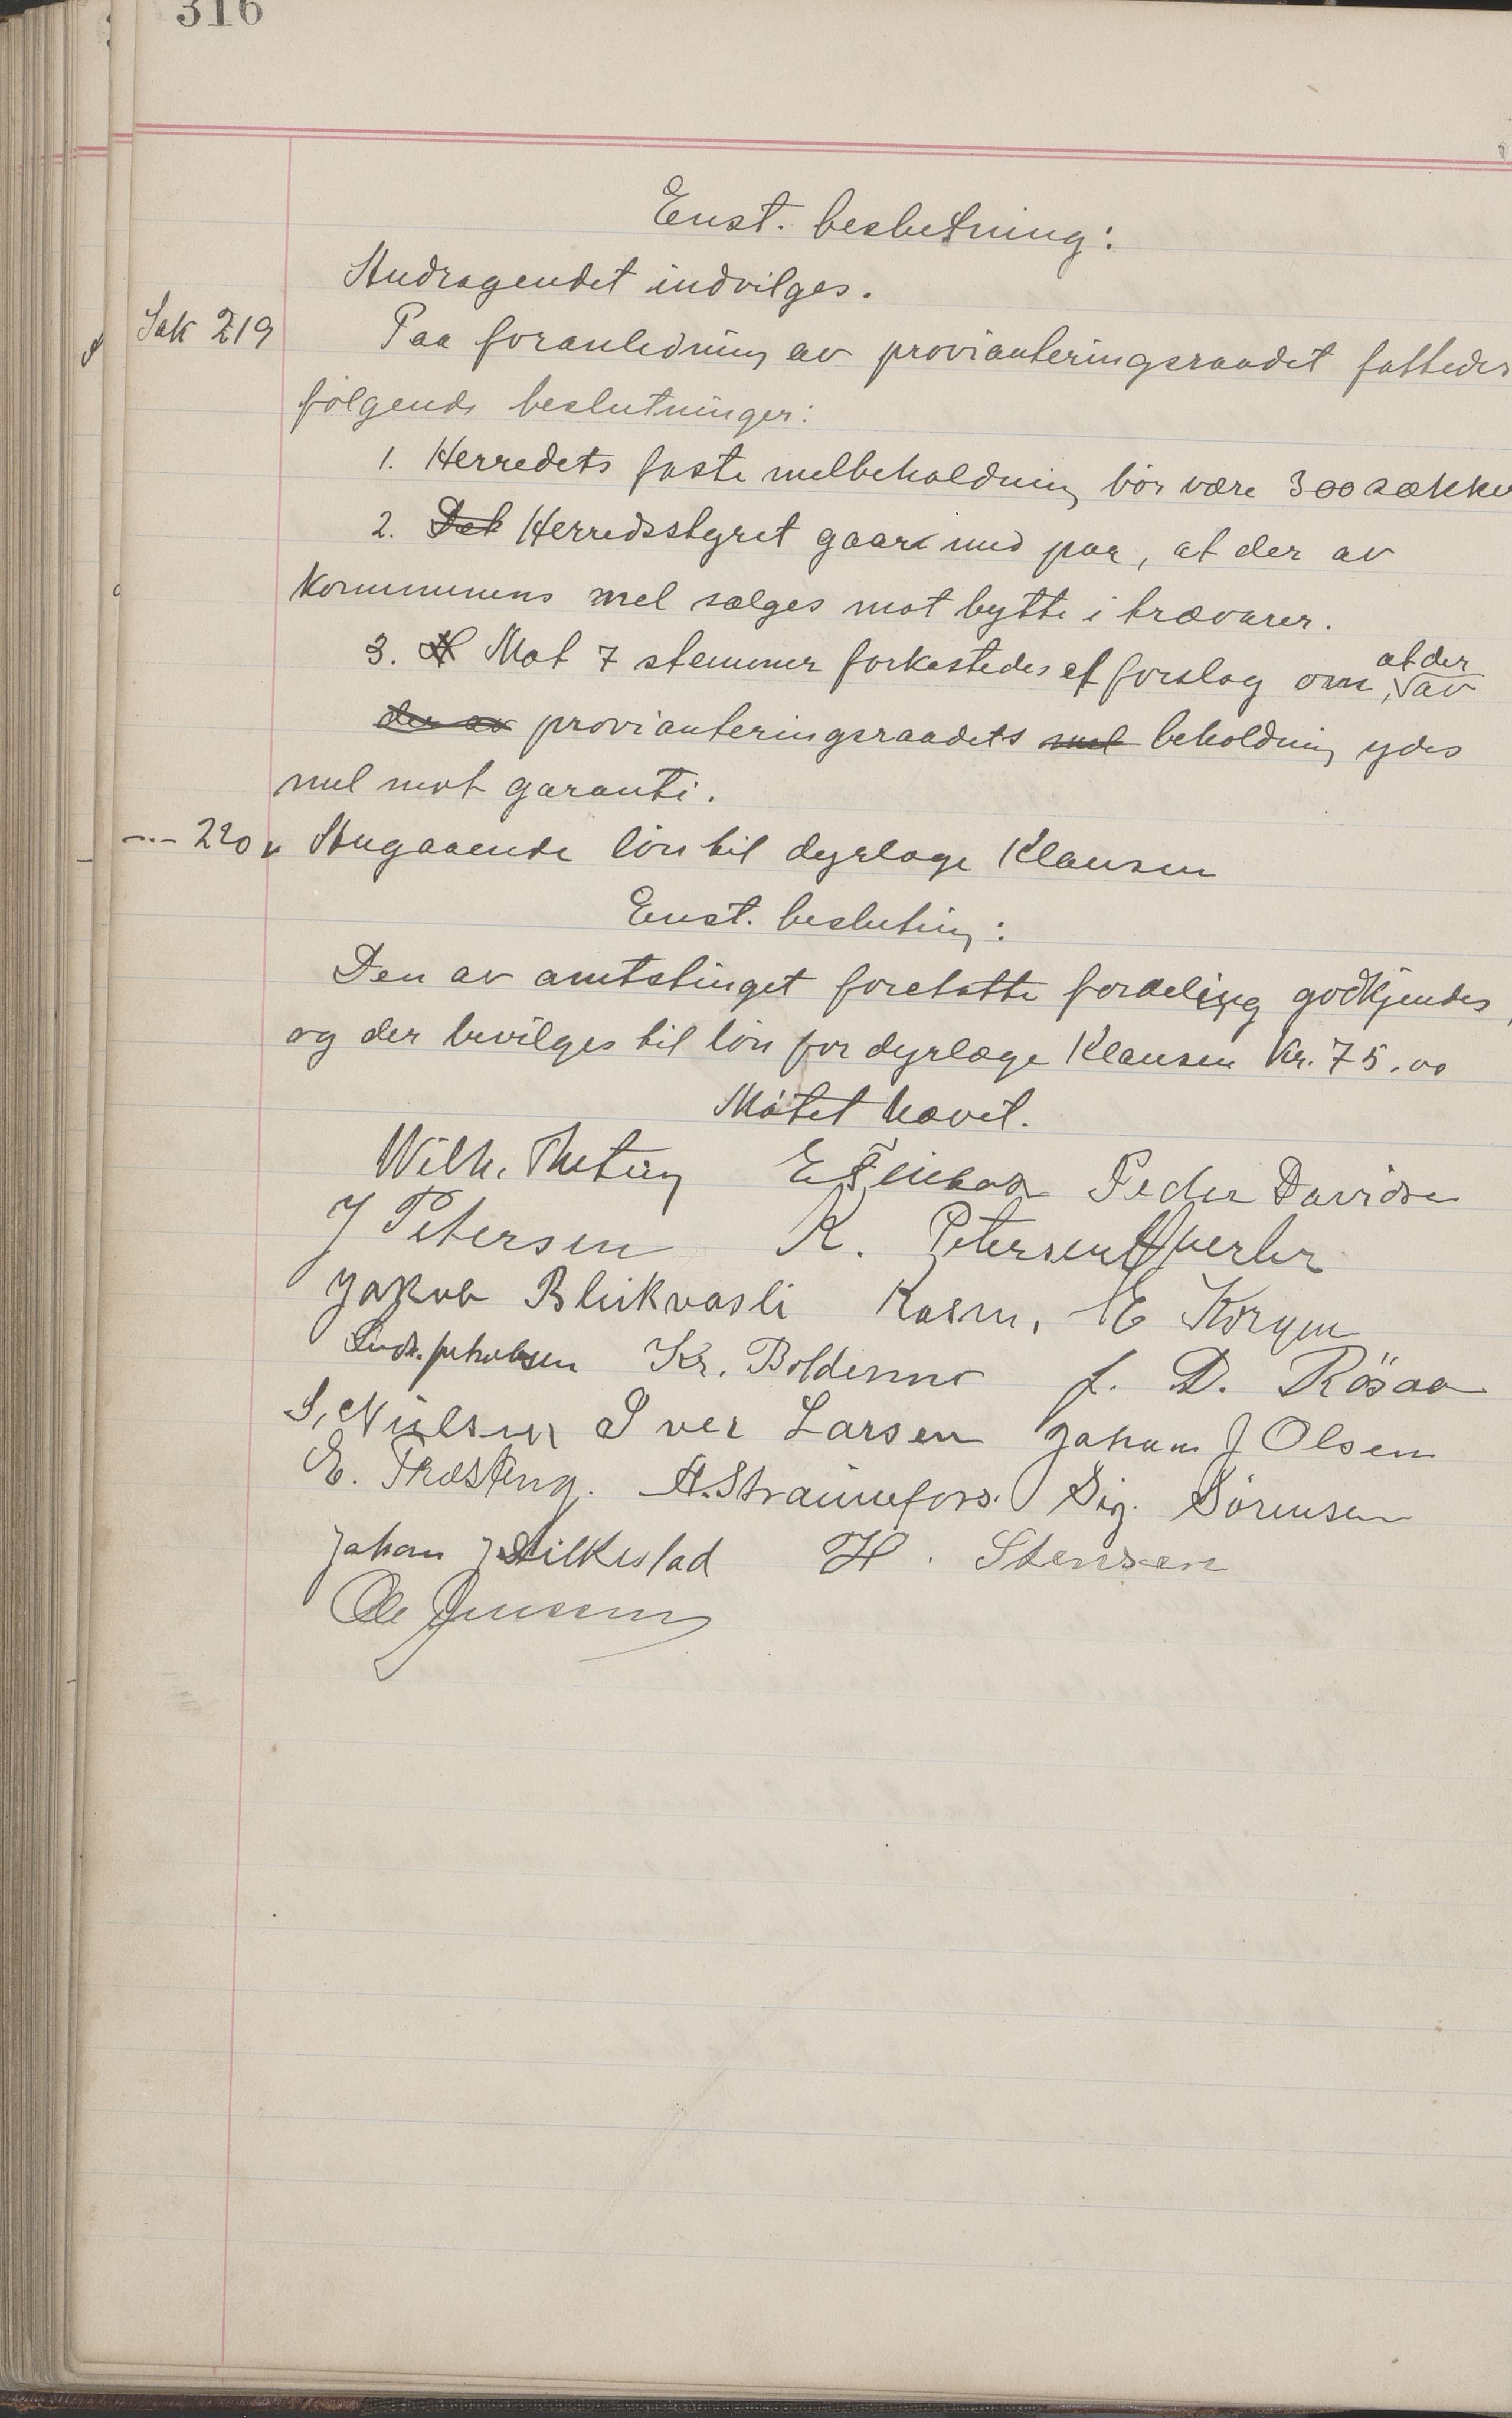 316
Enst. beslutning:
Andragendet indvilges.
Sak 219 Paa foranledning av provianteringsraadet fattedes
følgende beslutninger:
1. Herredets faste melbeholdning bør være 300 sækker
2. Det Herredsstyret gaar med paa, at der av
kommunens mel sælges mot bytte i trævarer.
3. Mot 7 stemmer forkastedes et forslag om, at der av
der av provianteringsraadets mel beholdning ydes
mel mot garanti.
-"- 220 Angaaende løn til dyrlæge Klausen
Enst. beslutning:
Den av amtstinget foretatte fordeling godkjendes,
og der bevilges til løn for dyrlæge Klausen kr. 75.00
Møtet hævet.
Wilh. Peder Davidsen
J Petersen K. Petersen
Jakob Bleikvasli Rasm. E Korgen
Ludv. Jakobsen Kr. Boldermo J. D. Røsaa
S. Nielsen Iver Larsen Johan J Olsen
E. A. Straumfors. Sig. Sörensen
Johan J. Stilkestad H. Stensen
Ole Jenssen